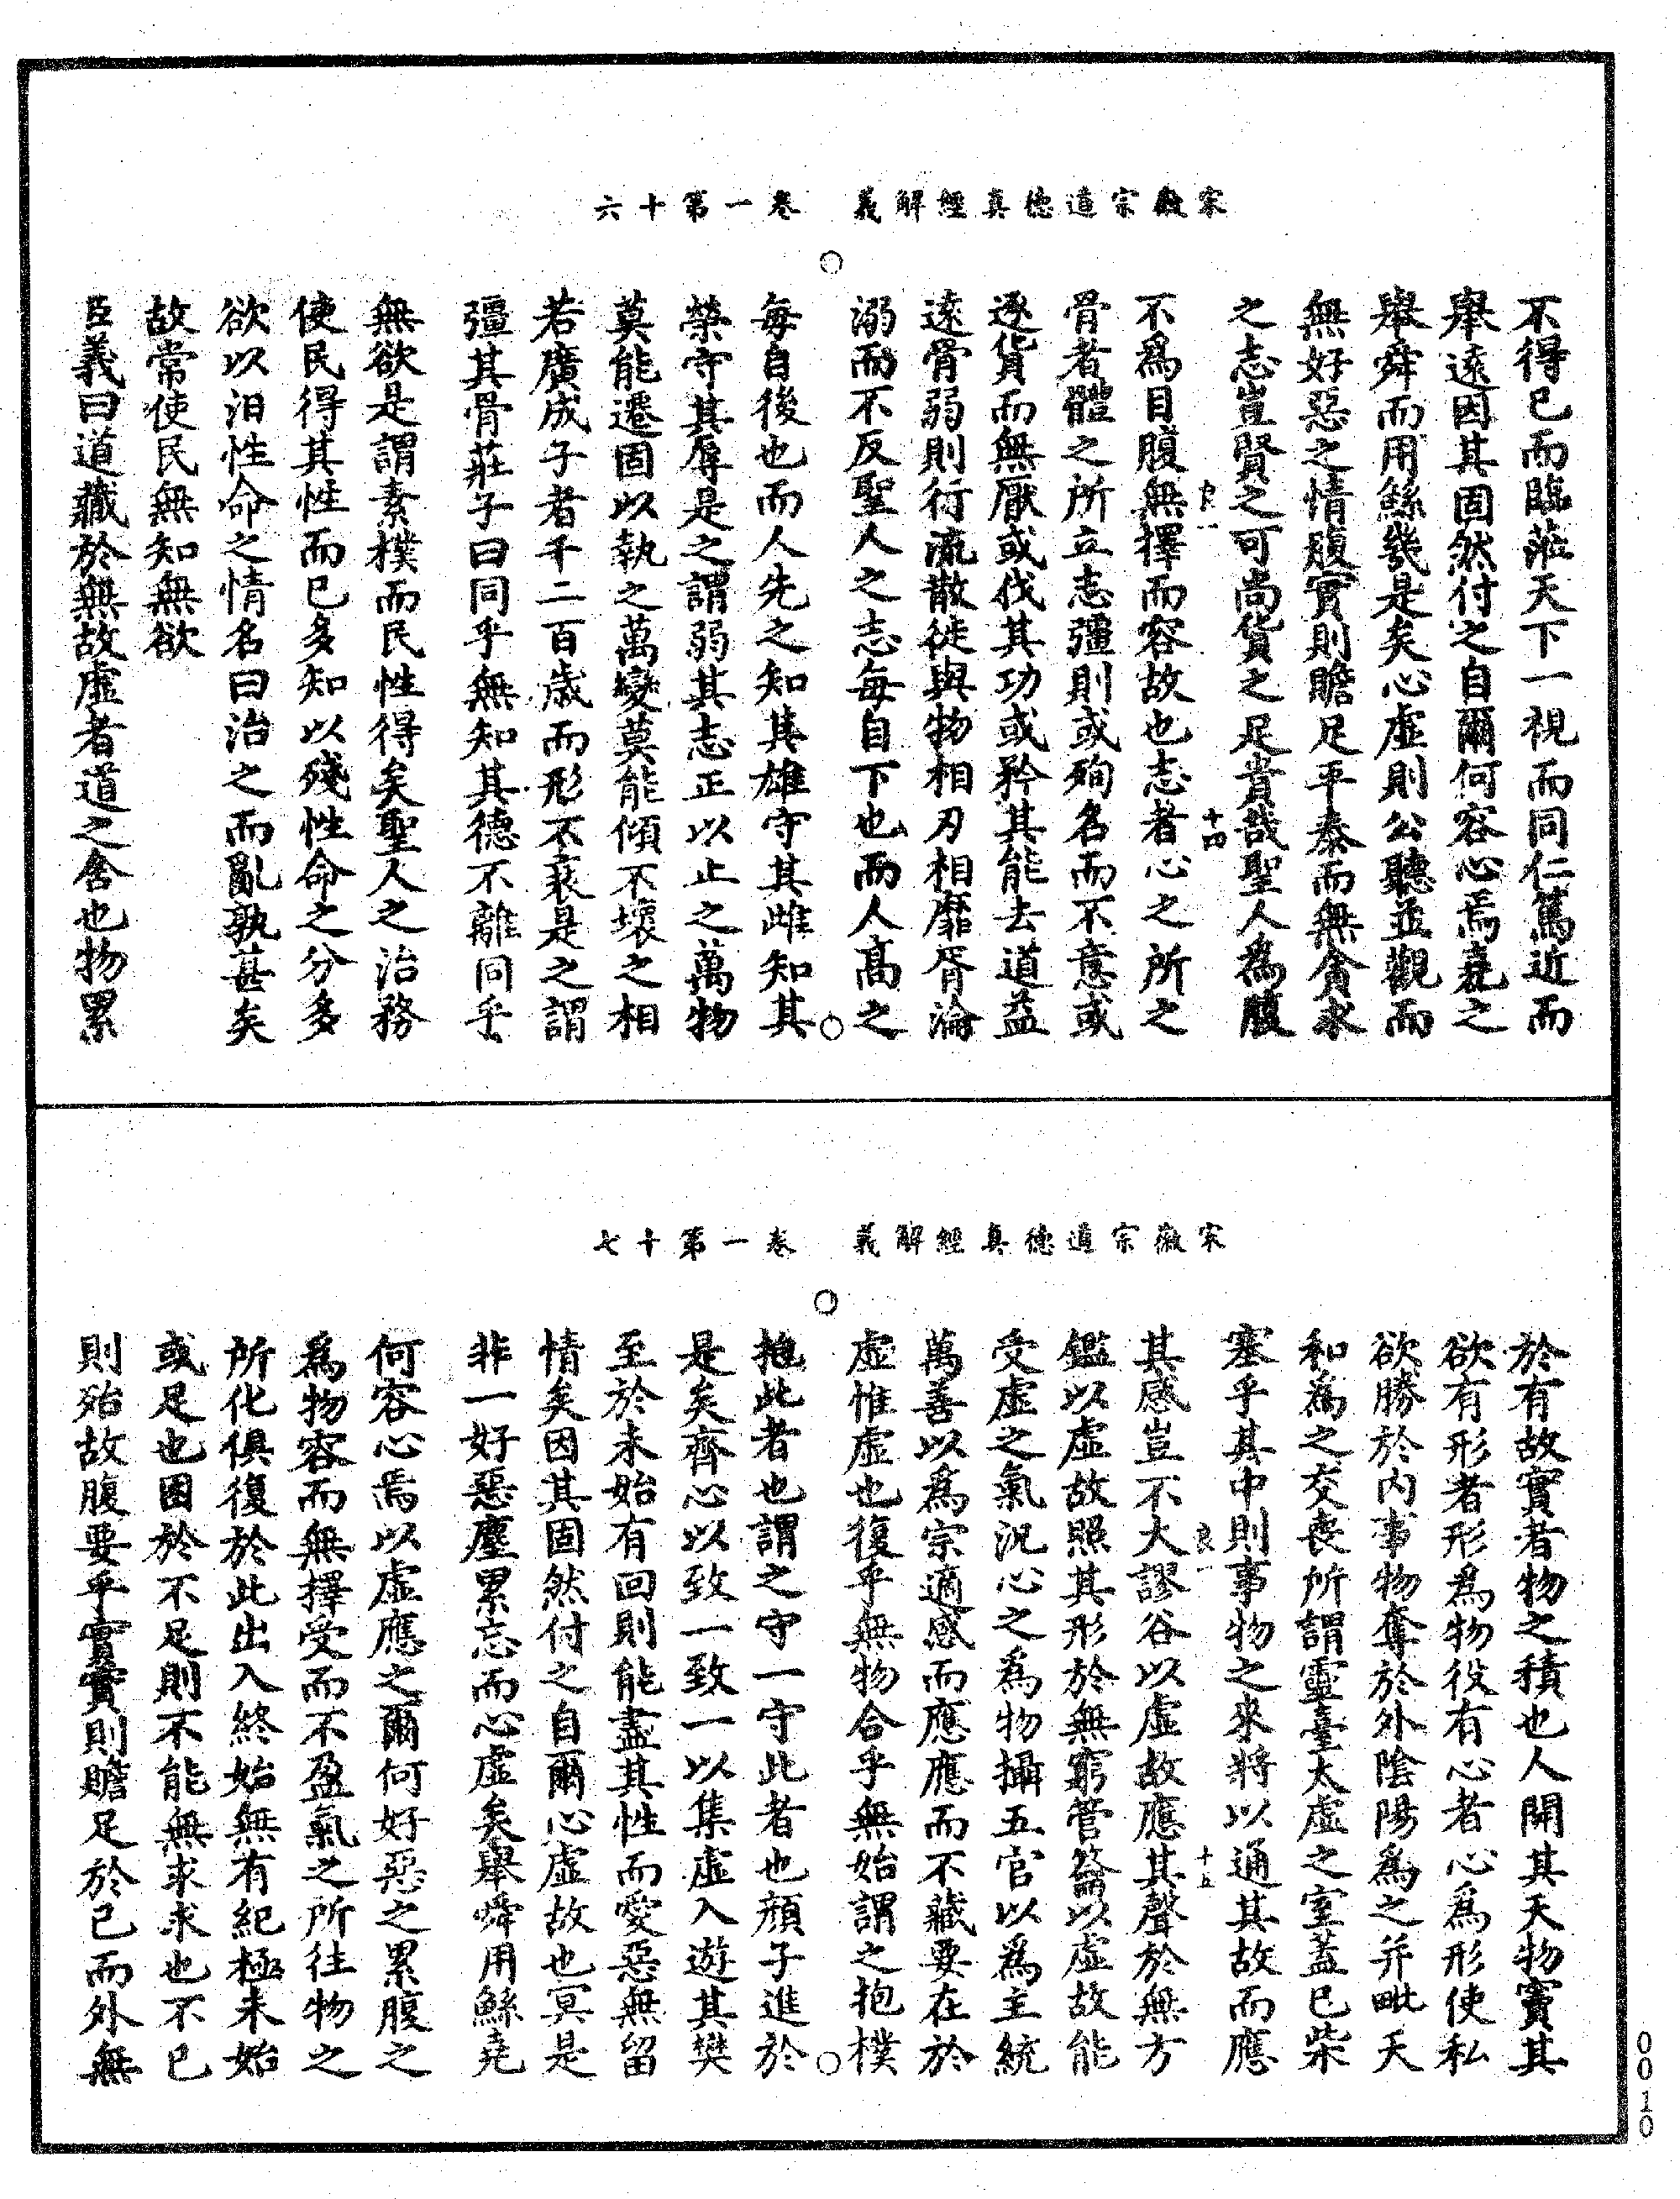 宋徽宗道德真經解義　卷一第十六
不得已而臨莅天下一視而同仁篤近而
舉遠因其固然付之自爾何容心焉堯之
舉舜而用鯀幾是矣心虛則公聽並觀而
無好惡之情腹實則贍足平泰而無貪求
之志豈賢之可尚貨之足貴哉聖人為腹
良一
十四
不為目腹無擇而容故也志者心之所之
骨者體之所立志彊則或殉名而不意或
逐貨而無厭或伐其功或矜其能去道益
遠骨弱則行流散徙與物相刃相靡胥淪
溺而不反聖人之志每自下也而人高之
每自後也而人先之知其雄守其雌知其
榮守其辱是之謂弱其志正以止之萬物
莫能遷固以執之萬變莫能傾不壞之相
若廣成子者千二百歲而形不衰是之謂
彊其骨莊子曰同乎無知其德不離同乎
無欲是謂素樸而民性得矣聖人之治務
使民得其性而已多知以殘性命之分多
欲以汨性命之情名曰治之而亂孰甚矣
故常使民無知無欲
臣義曰道藏於無故虛者道之舍也物累
宋徽宗道德真經解義　卷一第十七
於有故實者物之積也人開其天物竇其
欲有形者形為物役有心者心為形使私
欲勝於內事物奪於外陰陽為之并毗天
和為之交喪所謂靈臺太虛之室蓋已柴
塞乎其中則事物之來將以通其故而應
良一
十五
其感豈不大謬谷以虛故應其聲於無方
鑑以虛故照其形於無窮管籥以虛故能
受虛之氣況心之為物攝五官以為主統
萬善以為宗適感而應應而不藏要在於
虛惟虛也復乎無物合乎無始謂之抱樸
抱此者也謂之守一守此者也顏子進於
是矣齊心以致一致一以集虛入遊其樊
至於未始有回則能盡其性而愛惡無留
情矣因其固然付之自爾心虛故也冥是
非一好惡塵累忘而心虛矣舉舜用鯀堯
何容心焉以虛應之爾何好惡之累腹之
為物容而無擇受而不盈氣之所往物之
所化俱復於此出入終始無有紀極未始
或足也困於不足則不能無求求也不已
則殆故腹要乎實實則贍足於己而外無
0010